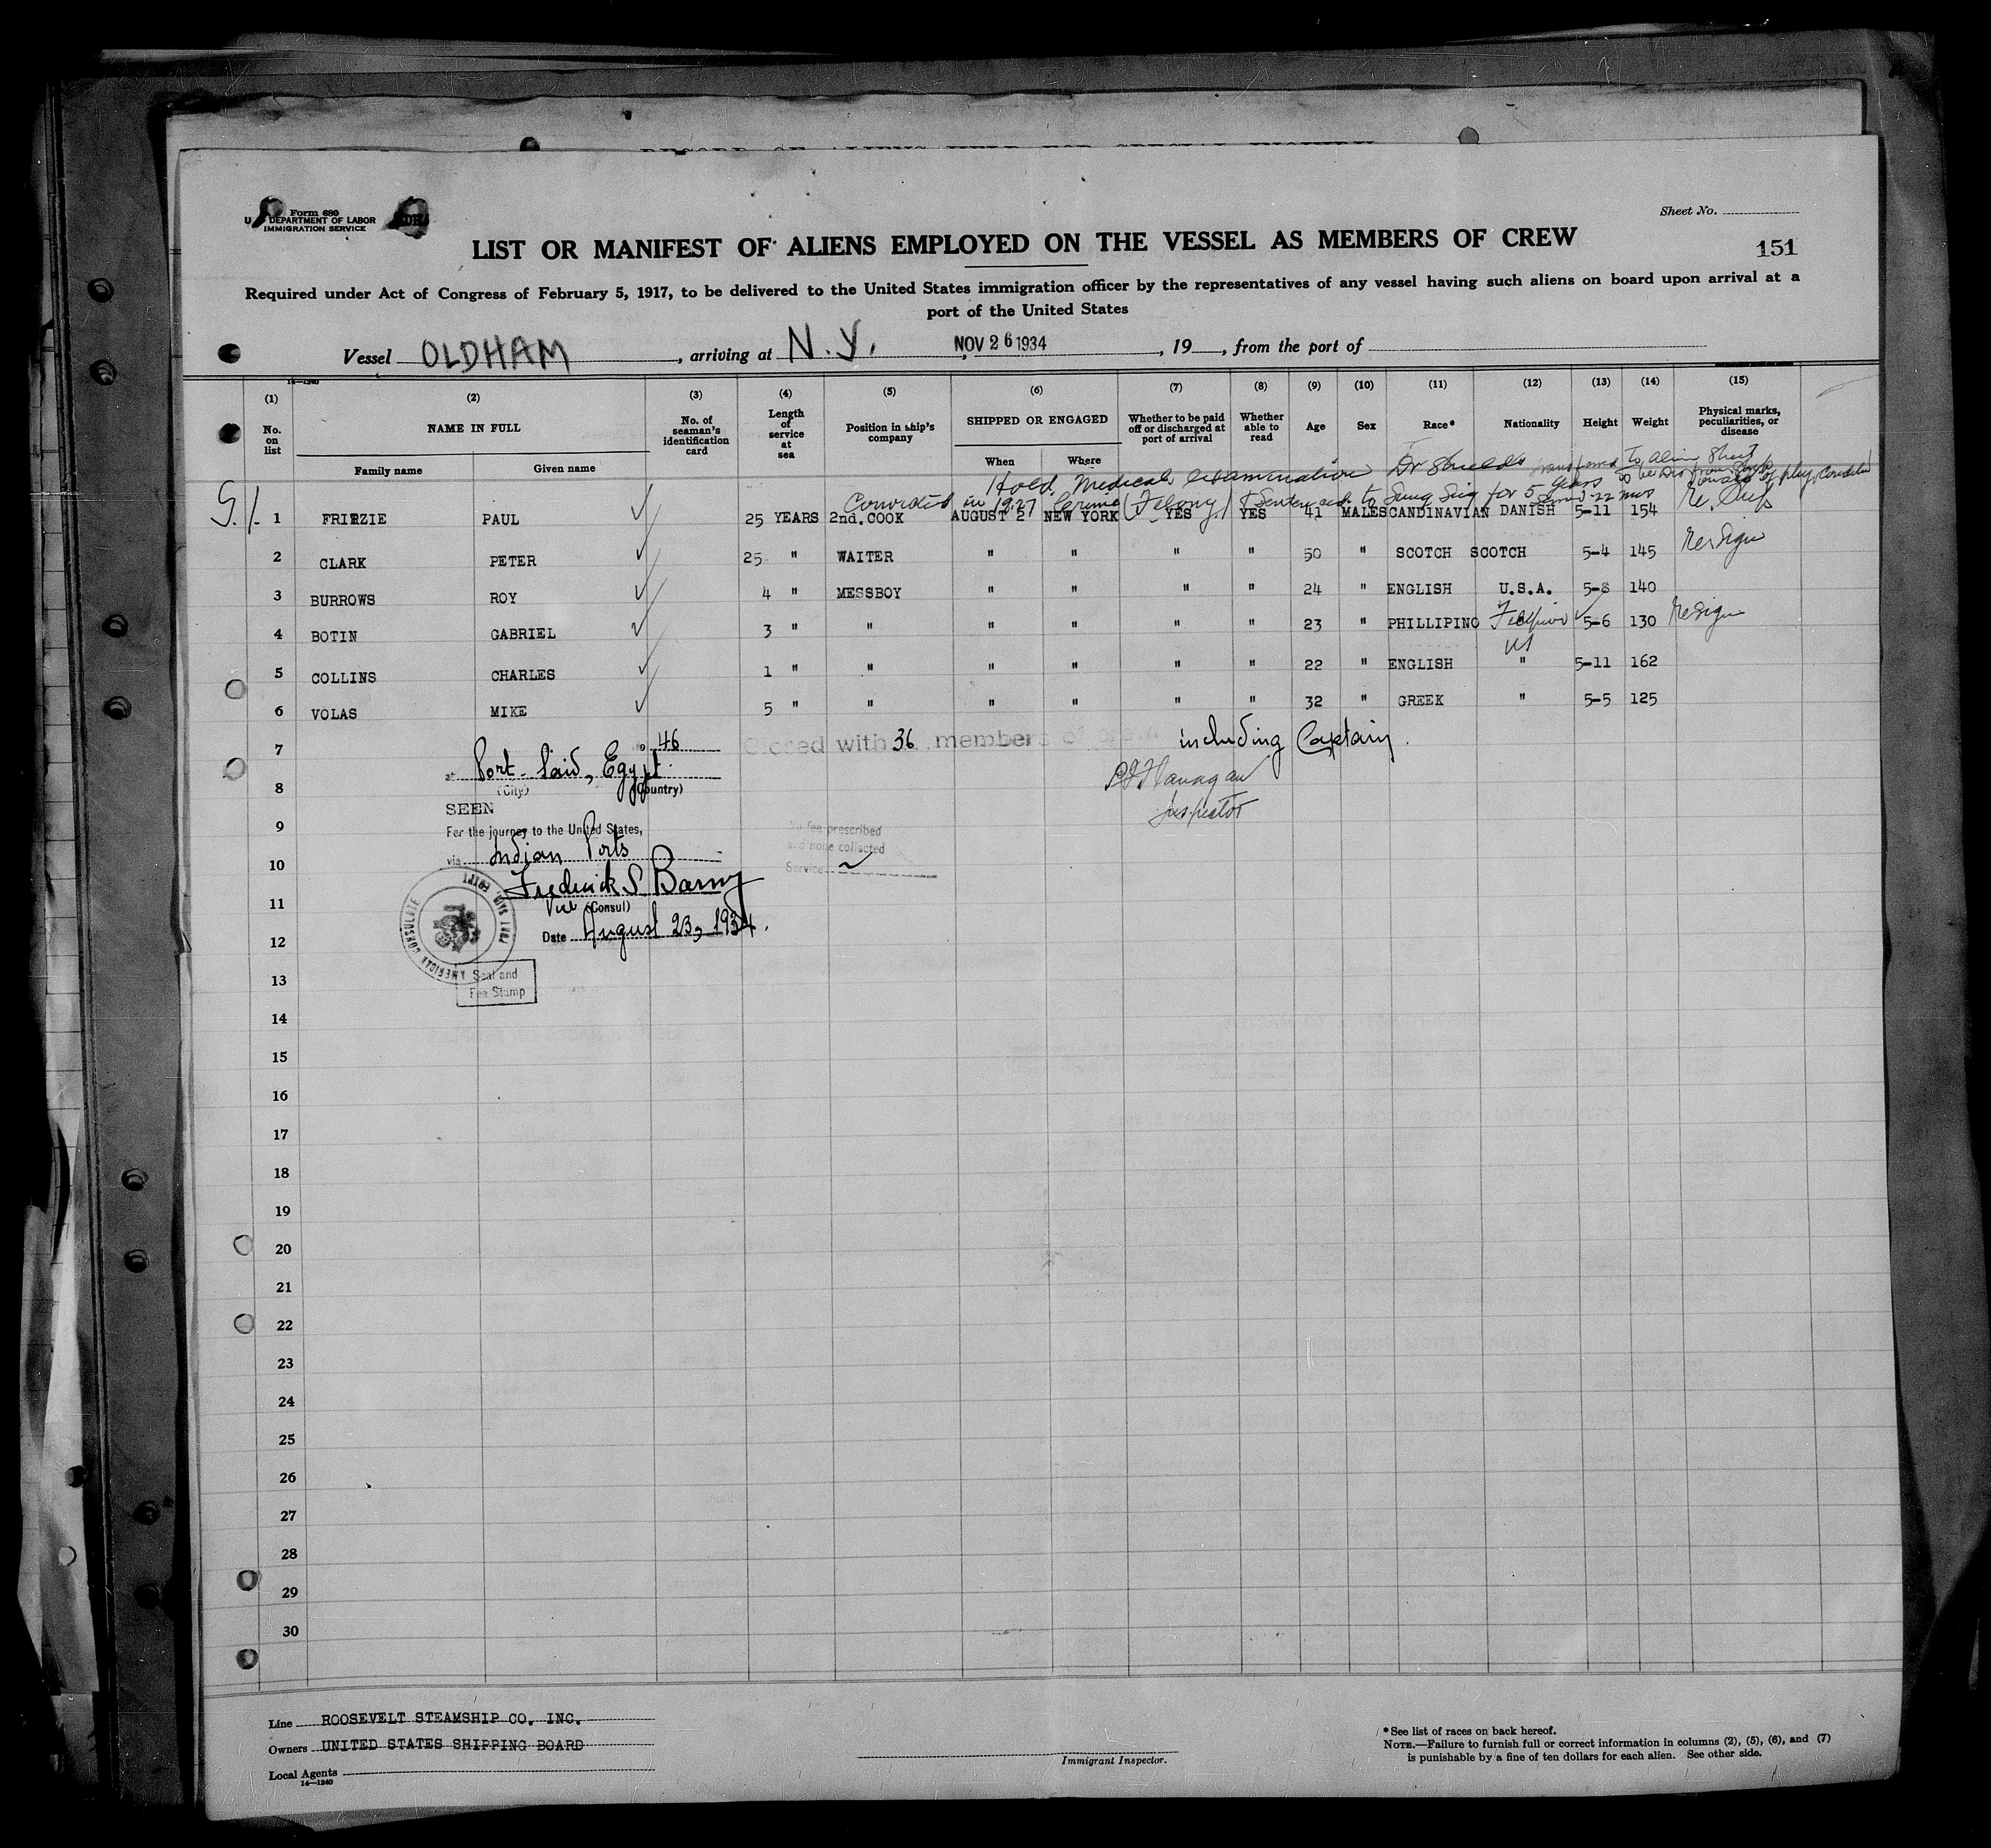 Form 680
DEPARTMENT OF LABOR
IMMIGRATION SERVICE
Sheet No.
LIST OR MANIFEST OF ALIENS EMPLOYED ON THE VESSEL AS MEMBERS OF CREW
151
Required under Act of Congress of February 5, 1917, to be delivered to the United States immigration officer by the representatives of any vessel having such aliens on board upon arrival at a
port of the United States
Vessel OLDHAM, arriving at N.Y., NOV 26 1934, 19, from the port of
14-1240
(1) (2) (3) (4) (5) (6) (7) (8) (9) (10) (11) (12) (13) (14) (15)
No. on list NAME IN FULL No. of seaman's identification card Length of service at sea Position in ship's company SHIPPED OR ENGAGED Whether to be paid off or discharged at port of arrival Whether able to read Age Sex Race* Nationality Height Weight Physical marks, peculiarities, or disease
Family name Given name When Where
Hold, Medical examination Dr Shields transferred to alien sheet
Convicted in 1927 Crime (Felony) & Sentenced to Sing Sing for 5 years
1 FRIEZIE PAUL 25 YEARS 2nd. COOK AUGUST 2 NEW YORK YES YES 41 MALE SCANDINAVIAN DANISH 5-11 154
2 CLARK PETER 25 " WAITER " " " " 50 " SCOTCH SCOTCH 5-4 145 Resign
3 BURROWS ROY 4 " MESSBOY " " " " 24 " ENGLISH U.S.A. 5-8 140
4 BOTIN GABRIEL 3 " " " " " " 23 " PHILLIPINO Filipino 5-6 130 Resign
US
5 COLLINS CHARLES 1 " " " " " " 22 " ENGLISH " 5-11 162
6 VOLAS MIKE 5 " " " " " " 32 " GREEK " 5-5 125
7 No 46 Closed with 36 members of crew including Captain.
at Port-Said, Egypt.
8 (City) (Country)
Inspector
SEEN
9 For the journey to the United States,
No fee prescribed
and none collected
10 via Indian Ports
Service
Frederick S. Barny
11 Vice (Consul)
12 Date August 23, 1934.
AMERICAN CONSULATE PORT SAID, EGYPT
13 Seal and
Fee Stamp
14
15
16
17
18
19
20
21
22
23
24
25
26
27
28
29
30
Line ROOSEVELT STEAMSHIP CO. INC.
Owners UNITED STATES SHIPPING BOARD
Local Agents
14-1240
Immigrant Inspector.
*See list of races on back hereof.
NOTE.—Failure to furnish full or correct information in columns (2), (5), (6), and (7)
is punishable by a fine of ten dollars for each alien. See other side.